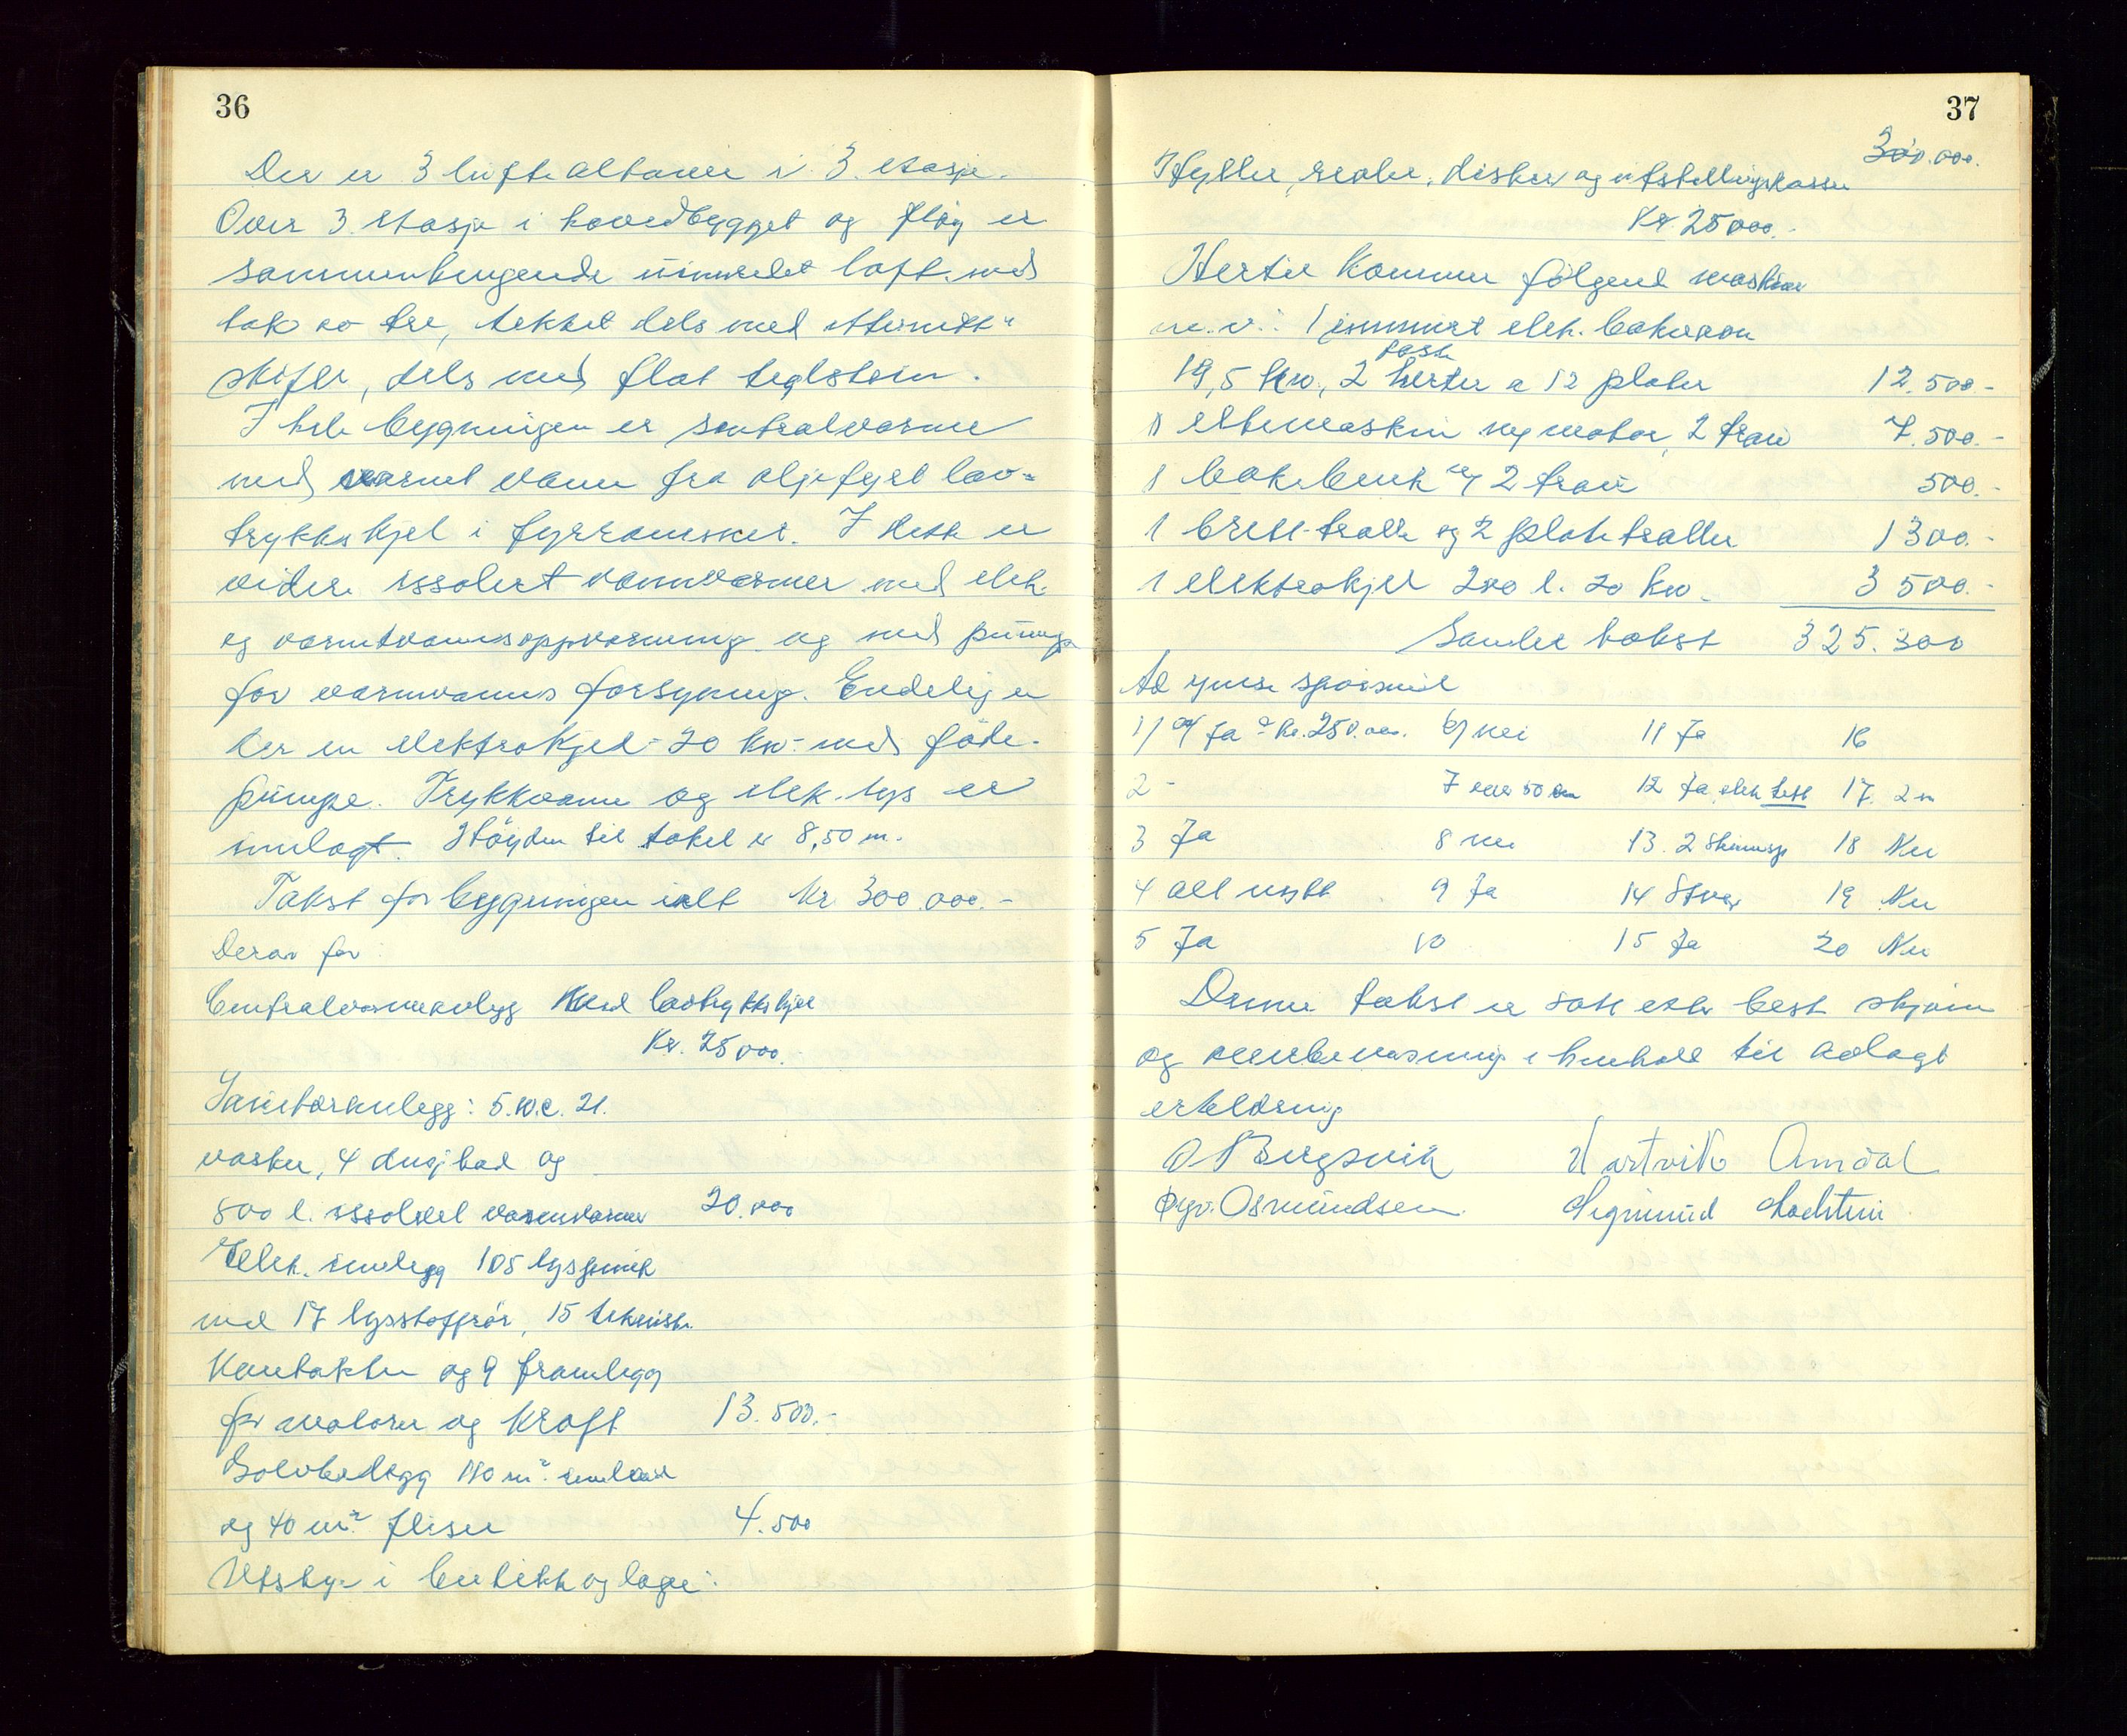 36
Der er 3 lufte altaner i 3. etasje.
Over 3. etasje i hovedbygget og fløy er
sammenhengende uinnredet loft med
tak av tre, tekket dels med etternitt"
skifer, dels med flat teglstein.
I hele bygningen er sentralvarme
med varmt vann fra oljefyrt lav-
trykkskjel i fyrrommet. I dette er
videre issolert vannvarmer med elek.
og varmtvannsoppvarming og med pumpe
for varmvanns forsyning. Endelig er
der en elektrokjel - 20 kw - med føde-
pumpe. Trykkvann og elek. lys er
innlagt. Høyden til taket er 8,50 m.
Takst for bygningen ialt Kr 300.000.-
Derav for:
Centralvarmeanlegg med lavtrykkskjel
Kr. 25 000.-
Sanitæranlegg: 5. W.C. 21.
vasker, 4 dusjbad og
800 l. issolert varmvarmer 20.000
Elek. innlegg 105 lyspunk
med 17 lysstoffrør, 15 tekniske
Kontakter og 9 framlegg
for motorer og kraft 13.500.-
Golvbelegg 110 m² linoleum
og 40 m² fliser 4.500
Utstyr i butikk og lager:
37
300.000.
Hyller, reoler, disker og utstillingskasser
Kr. 25 000.-
Hertil kommer følgend maskiner
m.v.: 1 innmurt elek. bakerovn
19,5 kw., 2 herter a 12 plater 12.500.-
1 eltemaskin ny motor, 2 trau 7.500.-
1 bakebenk og 2 trau 500.-
1 brett-tralle og 2 plate traller 1300.-
1 elektrokjel 200 l. 20 kw. 3 500.-
Samlet takst 325.300
Ad ymse spørsmål
1) a) Ja a kr. 250.000. 6) nei 11 Ja 16
2 - 7 over 50 cm 12 Ja elek tett 17. 2 m
3 Ja 8 nei 13. 2 18 Nei
4 alt nytt 9 Ja 14 19 Nei
5 Ja 10 15 Ja 20 Nei
Denne takst er satt etter best skjønn
og overbevisning i henhold til avlagt
erklæring
O Bergsvik Hartvik Amdal
Osmundsen Sigmund